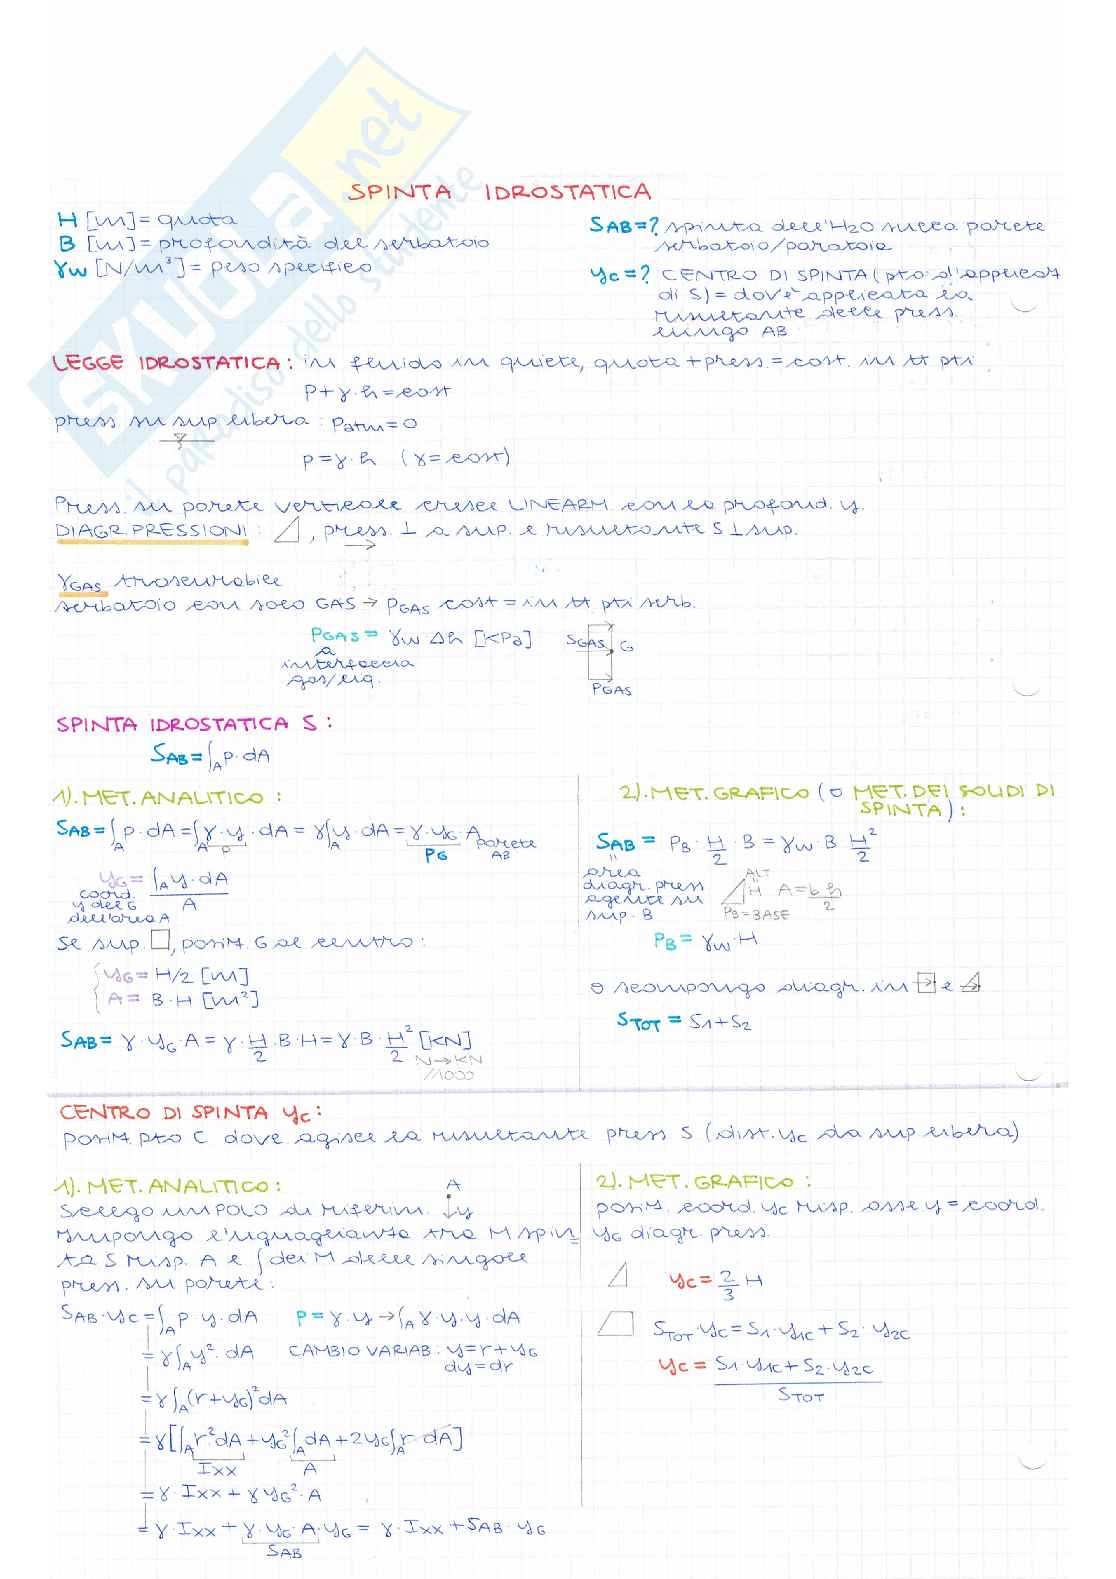 SKUOLA.net
il paradiso dello studente
SPINTA IDROSTATICA
H [m] = quota
B [m] = profondità del serbatoio
γw [N/m³] = peso specifico
SAB=? spinta dell'H2O sulla parete
serbatoio/paratoia
yc=? CENTRO DI SPINTA (pto d'applicaz
di S) = dov'è applicata la
risultante delle press.
lungo AB
LEGGE IDROSTATICA: in fluido in quiete, quota + press. = cost. in tt pti
p+γ·h=cost
press su sup libera: patm=0
p=γ·h (γ=cost)
Press. su parete verticale cresce LINEARM. con la profond. y.
DIAGR. PRESSIONI: , press. ⊥ a sup. e risultante S ⊥ sup.
γGAS trascurabile
serbatoio con solo GAS → PGAS cost = in tt pti serb.
PGAS = γw Δh [KPa]
a
interfaccia
gas/liq.
SGAS G
PGAS
SPINTA IDROSTATICA S:
SAB=∫A p·dA
1). MET. ANALITICO:
SAB=∫A p·dA=∫A γ·y·dA=γ∫A y·dA=γ·yG·A
p
PG
parete
AB
yG = ∫A y·dA / A
coord.
y del G
dell'area A
Se sup. □, posiz. G al centro:
yG= H/2 [m]
A= B·H [m²]
SAB= γ·yG·A = γ·H/2·B·H = γ·B·H²/2 [KN]
N→KN
//1000
2). MET. GRAFICO (o MET. DEI SOLIDI DI
SPINTA):
SAB = PB·H/2·B = γw·B H²/2
"
area
diagr. press
agente su
sup. B
ALT
H A=b·h/2
PB=BASE
PB= γw·H
o scompongo diagr. in e
STOT = S1+S2
CENTRO DI SPINTA yc:
posiz. pto C dove agisce la risultante press S (dist. yc da sup libera)
1). MET. ANALITICO:
A
Scelgo un POLO di riferim. ↓y
Impongo l'uguaglianza tra M spin
ta S risp. A e ∫ dei M delle singole
press. su parete:
SAB·yc=∫A p y·dA p=γ·y→∫A γ·y·y·dA
=γ∫A y²·dA CAMBIO VARIAB: y=r+yG
dy=dr
=γ∫A(r+yG)²dA
=γ[∫A r²dA+yG²∫A dA+2yG∫A r·dA]
Ixx A
=γ Ixx+γ yG²·A
=γ·Ixx+γ·yG·A·yG = γ·Ixx+SAB·yG
SAB
2). MET. GRAFICO:
posiz. coord. yc risp. asse y = coord.
yG diagr. press.
yc= 2/3 H
STOT·yc=S1·y1c+S2·y2c
yc= S1·y1c+S2·y2c / STOT